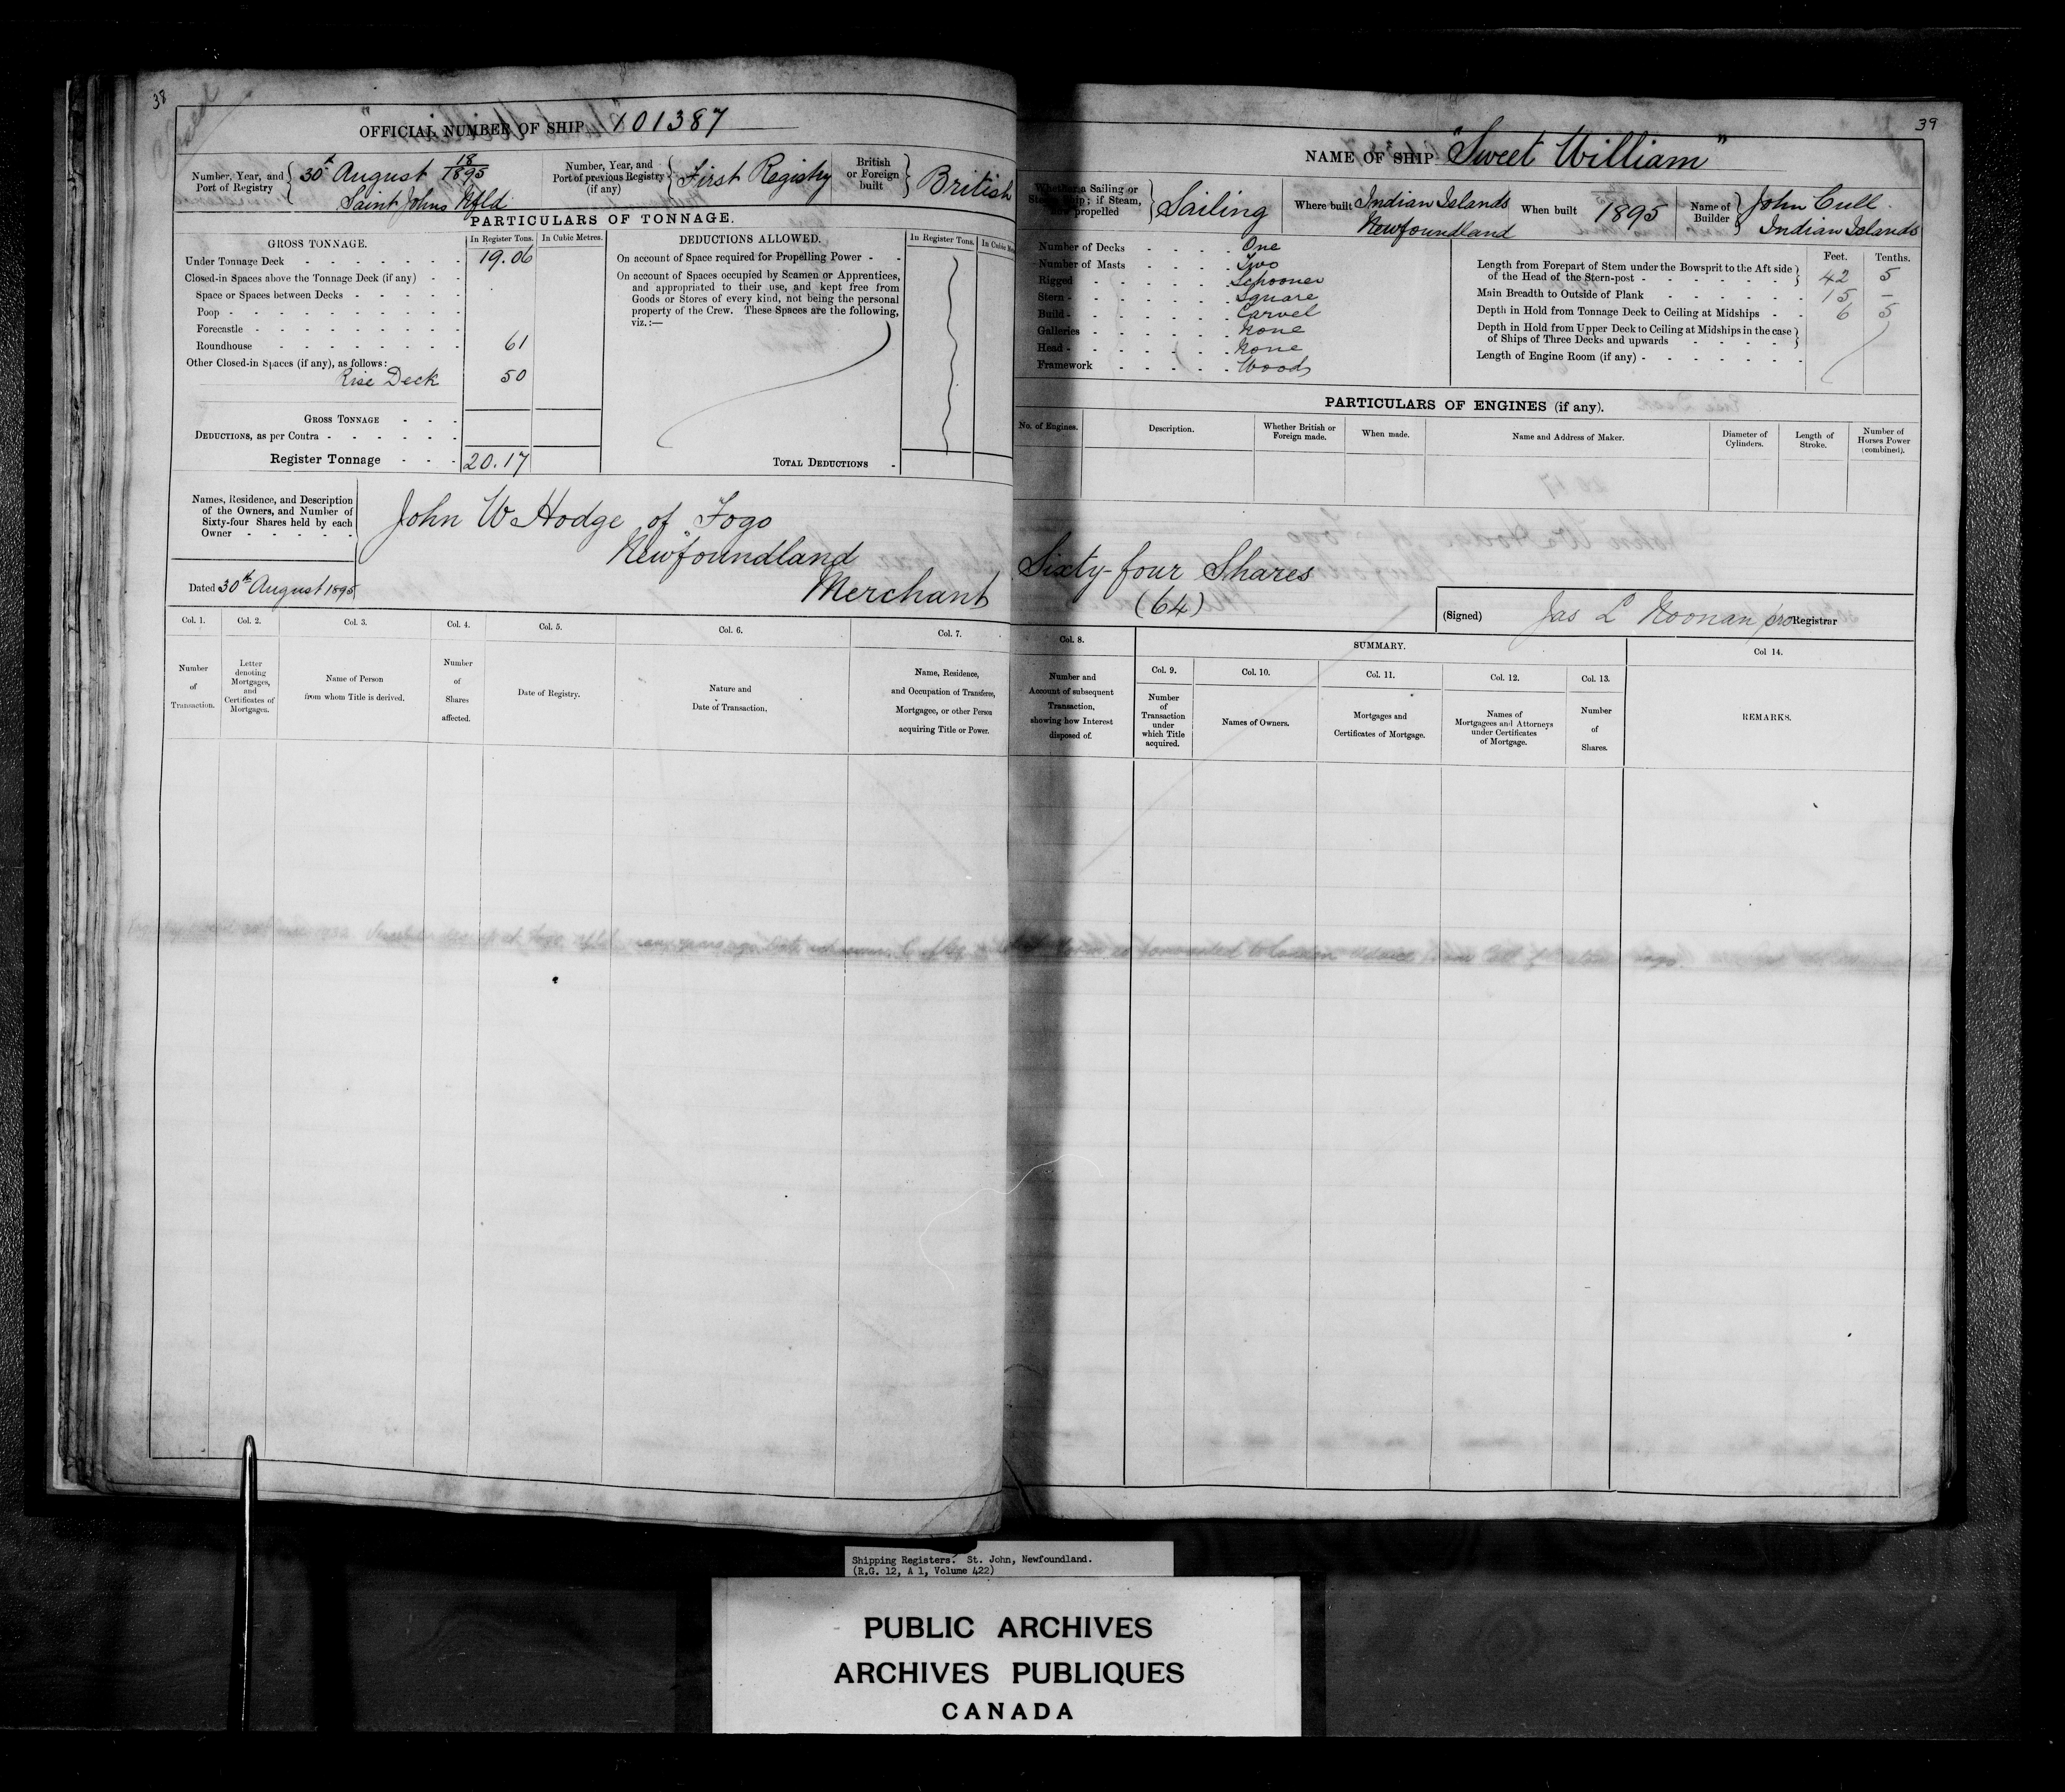 38
OFFICIAL NUMBER OF SHIP 101387
Number, Year, and Port of Registry
30th August 18/1895
Saint Johns Nfld
Number, Year, and Port of previous Registry (if any)
First Registry
British or Foreign built
British
PARTICULARS OF TONNAGE.
GROSS TONNAGE.
In Register Tons.
In Cubic Metres.
Under Tonnage Deck 19.06
Closed-in Spaces above the Tonnage Deck (if any)
Space or Spaces between Decks
Poop
Forecastle
Roundhouse 61
Other Closed-in Spaces (if any), as follows:
Rise Deck 50
GROSS TONNAGE
DEDUCTIONS, as per Contra
Register Tonnage 20.17
DEDUCTIONS ALLOWED.
In Register Tons.
On account of Space required for Propelling Power
On account of Spaces occupied by Seamen or Apprentices,
and appropriated to their use, and kept free from
Goods or Stores of every kind, not being the personal
property of the Crew. These Spaces are the following,
viz.:—
TOTAL DEDUCTIONS
Names, Residence, and Description
of the Owners, and Number of
Sixty-four Shares held by each
Owner
John W Hodge of Fogo
Newfoundland
Merchant
Dated 30th August 1895
Col. 1.
Number of Transaction.
Col. 2.
Letter denoting Mortgages, and Certificates of Mortgages.
Col. 3.
Name of Person
from whom Title is derived.
Col. 4.
Number of Shares affected.
Col. 5.
Date of Registry.
Col. 6.
Nature and
Date of Transaction.
Col. 7.
Name, Residence,
and Occupation of Transferee,
Mortgagee, or other Person
acquiring Title or Power.
39
NAME OF SHIP "Sweet William"
Whether a Sailing or Steam Ship; if Steam, how propelled
Sailing
Where built Indian Islands
Newfoundland
When built 1895
Name of Builder
John Cull
Indian Islands
Number of Decks One
Number of Masts Two
Rigged Schooner
Stern Square
Build Carvel
Galleries None
Head None
Framework Wood
Feet. Tenths.
Length from Forepart of Stem under the Bowsprit to the Aft side
of the Head of the Stern-post 42 5
Main Breadth to Outside of Plank 15 –
Depth in Hold from Tonnage Deck to Ceiling at Midships 6 5
Depth in Hold from Upper Deck to Ceiling at Midships in the case
of Ships of Three Decks and upwards
Length of Engine Room (if any)
PARTICULARS OF ENGINES (if any).
No. of Engines.
Description.
Whether British or Foreign made.
When made.
Name and Address of Maker.
Diameter of Cylinders.
Length of Stroke.
Number of Horses Power (combined).
Sixty-four Shares
(64)
(Signed) Jas L Noonan pro Registrar
Col. 8.
Number and
Account of subsequent
Transaction,
showing how Interest
disposed of.
SUMMARY.
Col. 9.
Number of Transaction under which Title acquired.
Col. 10.
Names of Owners.
Col. 11.
Mortgages and
Certificates of Mortgage.
Col. 12.
Names of
Mortgagees and Attorneys
under Certificates
of Mortgage.
Col. 13.
Number of Shares.
Col 14.
REMARKS.
Shipping Registers. St. John, Newfoundland.
(R.G. 12, A 1, Volume 422)
PUBLIC ARCHIVES
ARCHIVES PUBLIQUES
CANADA